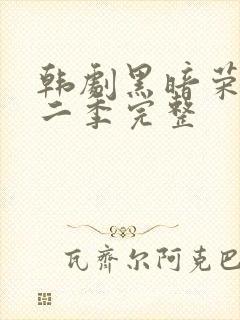 韩劇黑暗荣
二季完整
瓦齐尔阿克巴